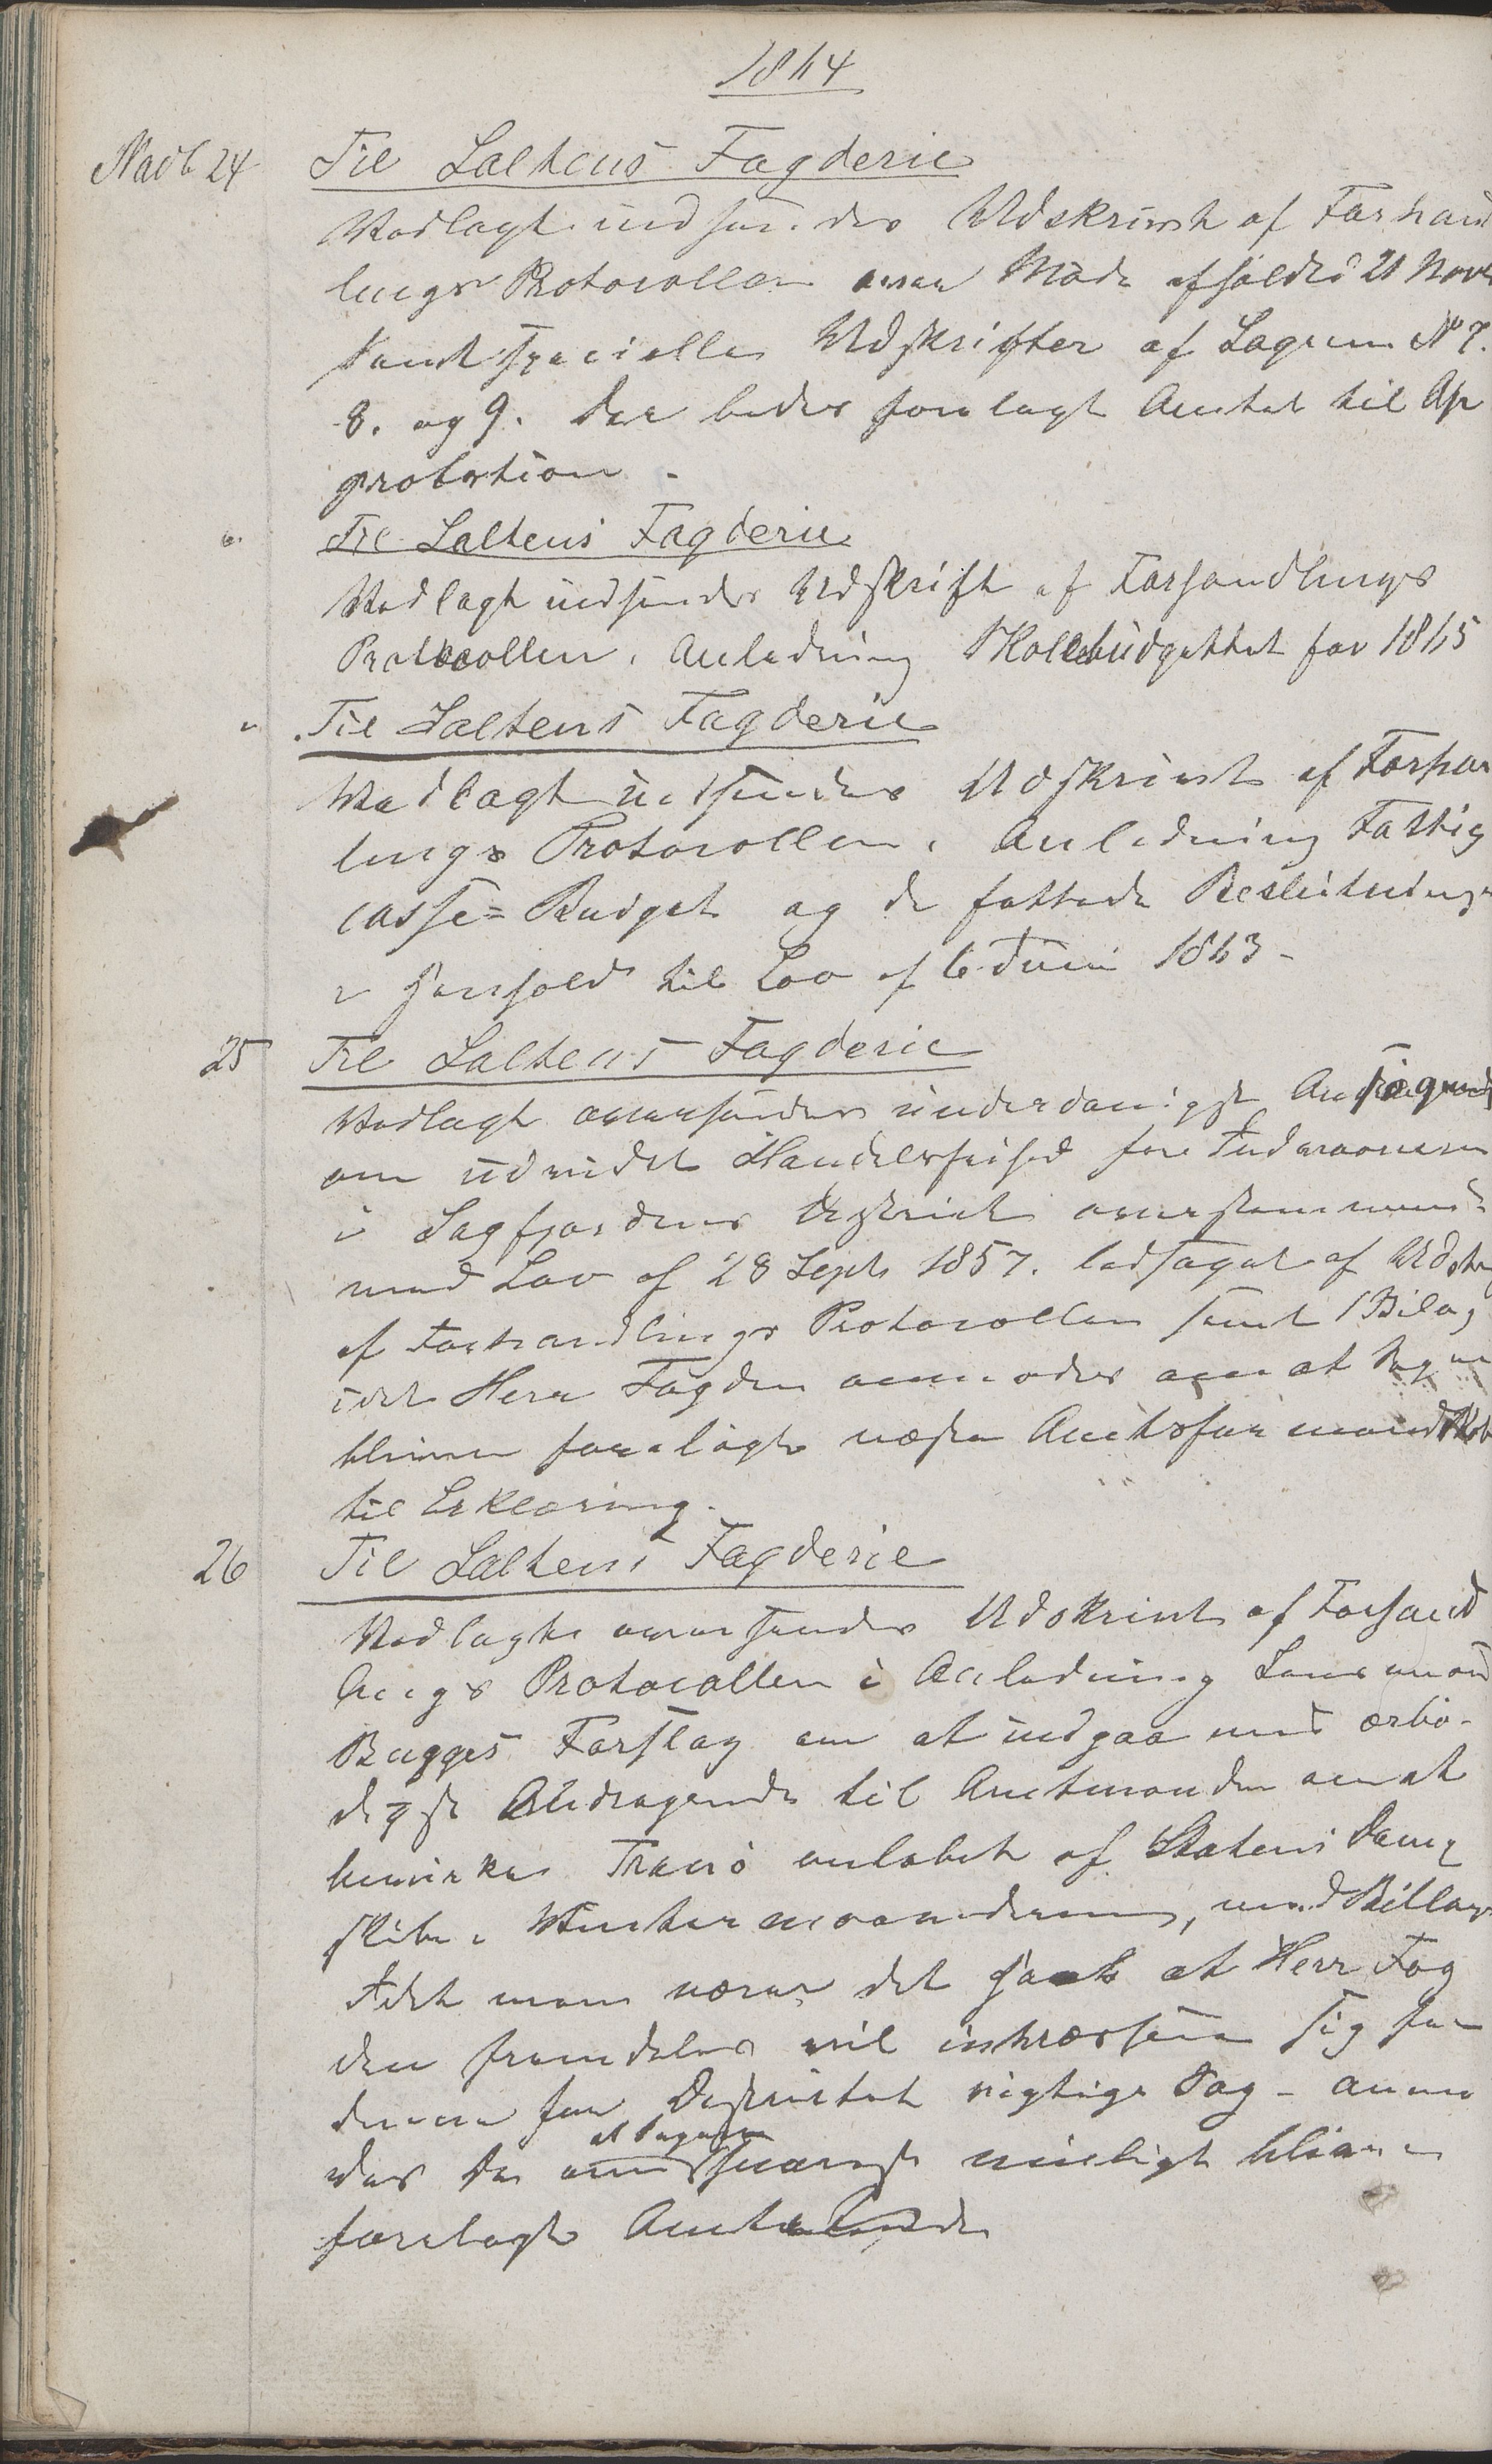 1864
Novb 24 Til Saltens Fogderie
Vedlagt indsendes Udskrivt af Forhand
lings Protocollen over Møde afholdt 21 Nov
samt specielle Udskrifter af Sagerne No 7.
8. og 9. der bedes forelagt Amtet til Ap
probation.
" Til Saltens Fogderie
Vedlagt indsendes Udskrift af Forhandlings
Protocollen i Anledning Skolebudgettet for 1865
" Til Saltens Fogderie
Vedlagt indsendes Udskrivt af Forhan
lings Protocollen i Anledning Fattig
casse-Budget og de fattede Beslutninger
i Henhold til Lov af 6 Juni 1863 -
25 Til Saltens Fogderie
Vedlagt oversendes underdanigst Ansøgende
om udvidet Handelsfrihed for Indvaanerne
i Sagfjordens Distrikt overstemmende
med Lov af 28 Septr 1857. ledsaget af Udskr
af Forhandlings Protocollen samt 1 Bilag
idet Herr Fogden anmodes om at Sagen
bliver forelagt næste Amtsformandskab
til Erklæring.
26 Til Saltens Fogderie
Vedlagt oversendes Udskrivt af Forhand
lings Protocollen i Anledning Lensmand
Bugges Forslag om at indgaa med ærbø-
digst Andragende til Amtmanden om at
bevirke Tranø anløbet af Statens Damp
skibe i Vintermaanederne, med Billag
Idet man nærer det Haab at Herr Fog
den fremdeles vil intræssere sig for
denne for Distriktet vigtige Sag - anmo
des De om at Sagen snarest mueligt bliver
forelagt